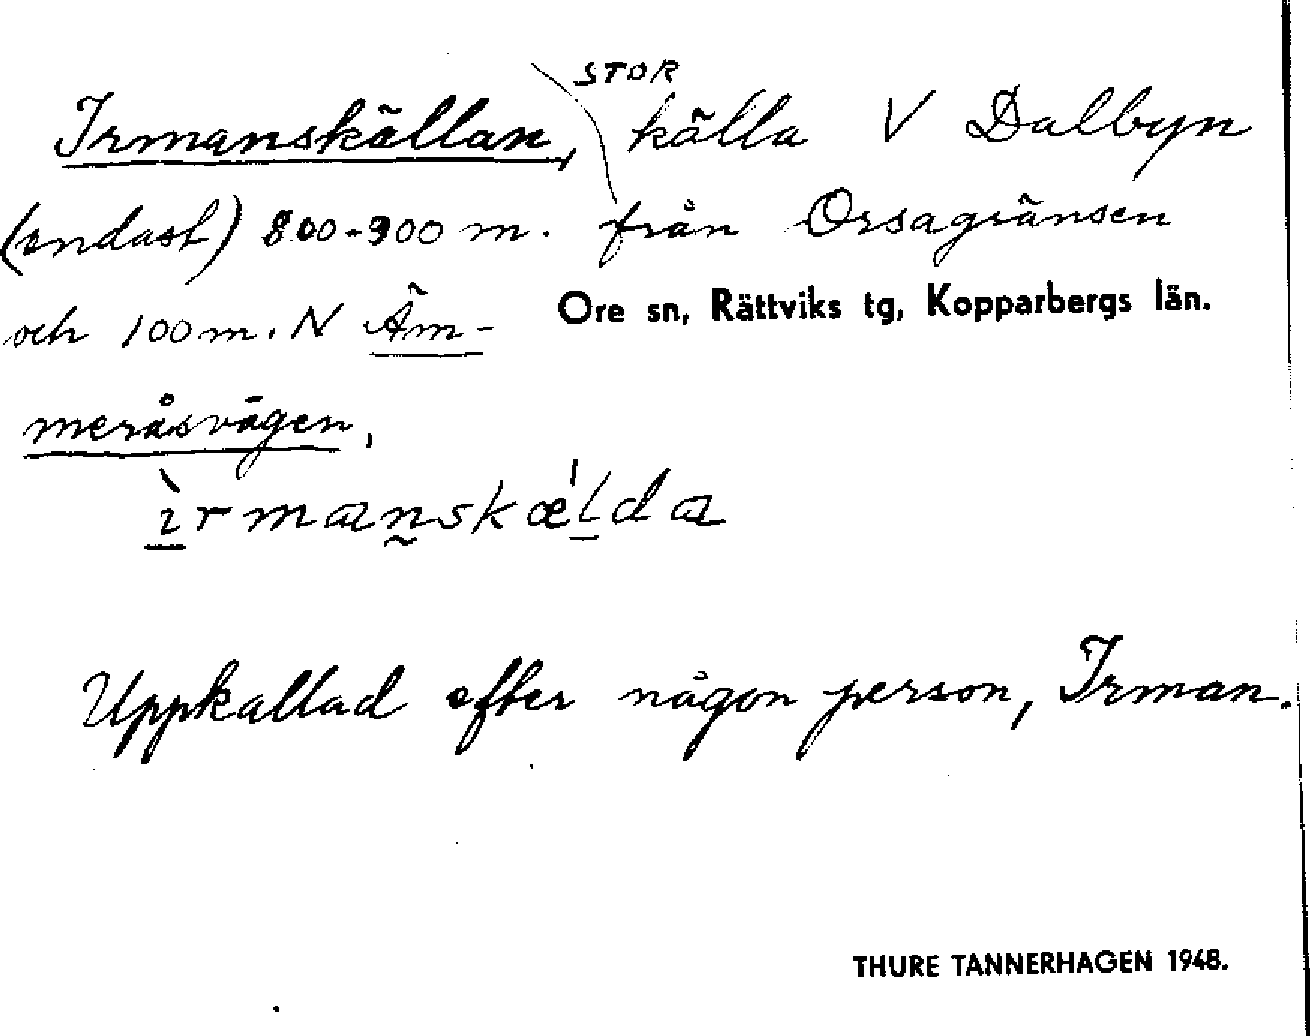 Irmanskällan, STOR källa V Dalbyn
(endast) 800-900 m. från Orsagränsen
och 100 m. N Äm-
Ore sn, Rättviks tg, Kopparbergs län.
meråsvägen,
ìrmanskæ'lda
Uppkallad efter någon person, Irman.
THURE TANNERHAGEN 1948.